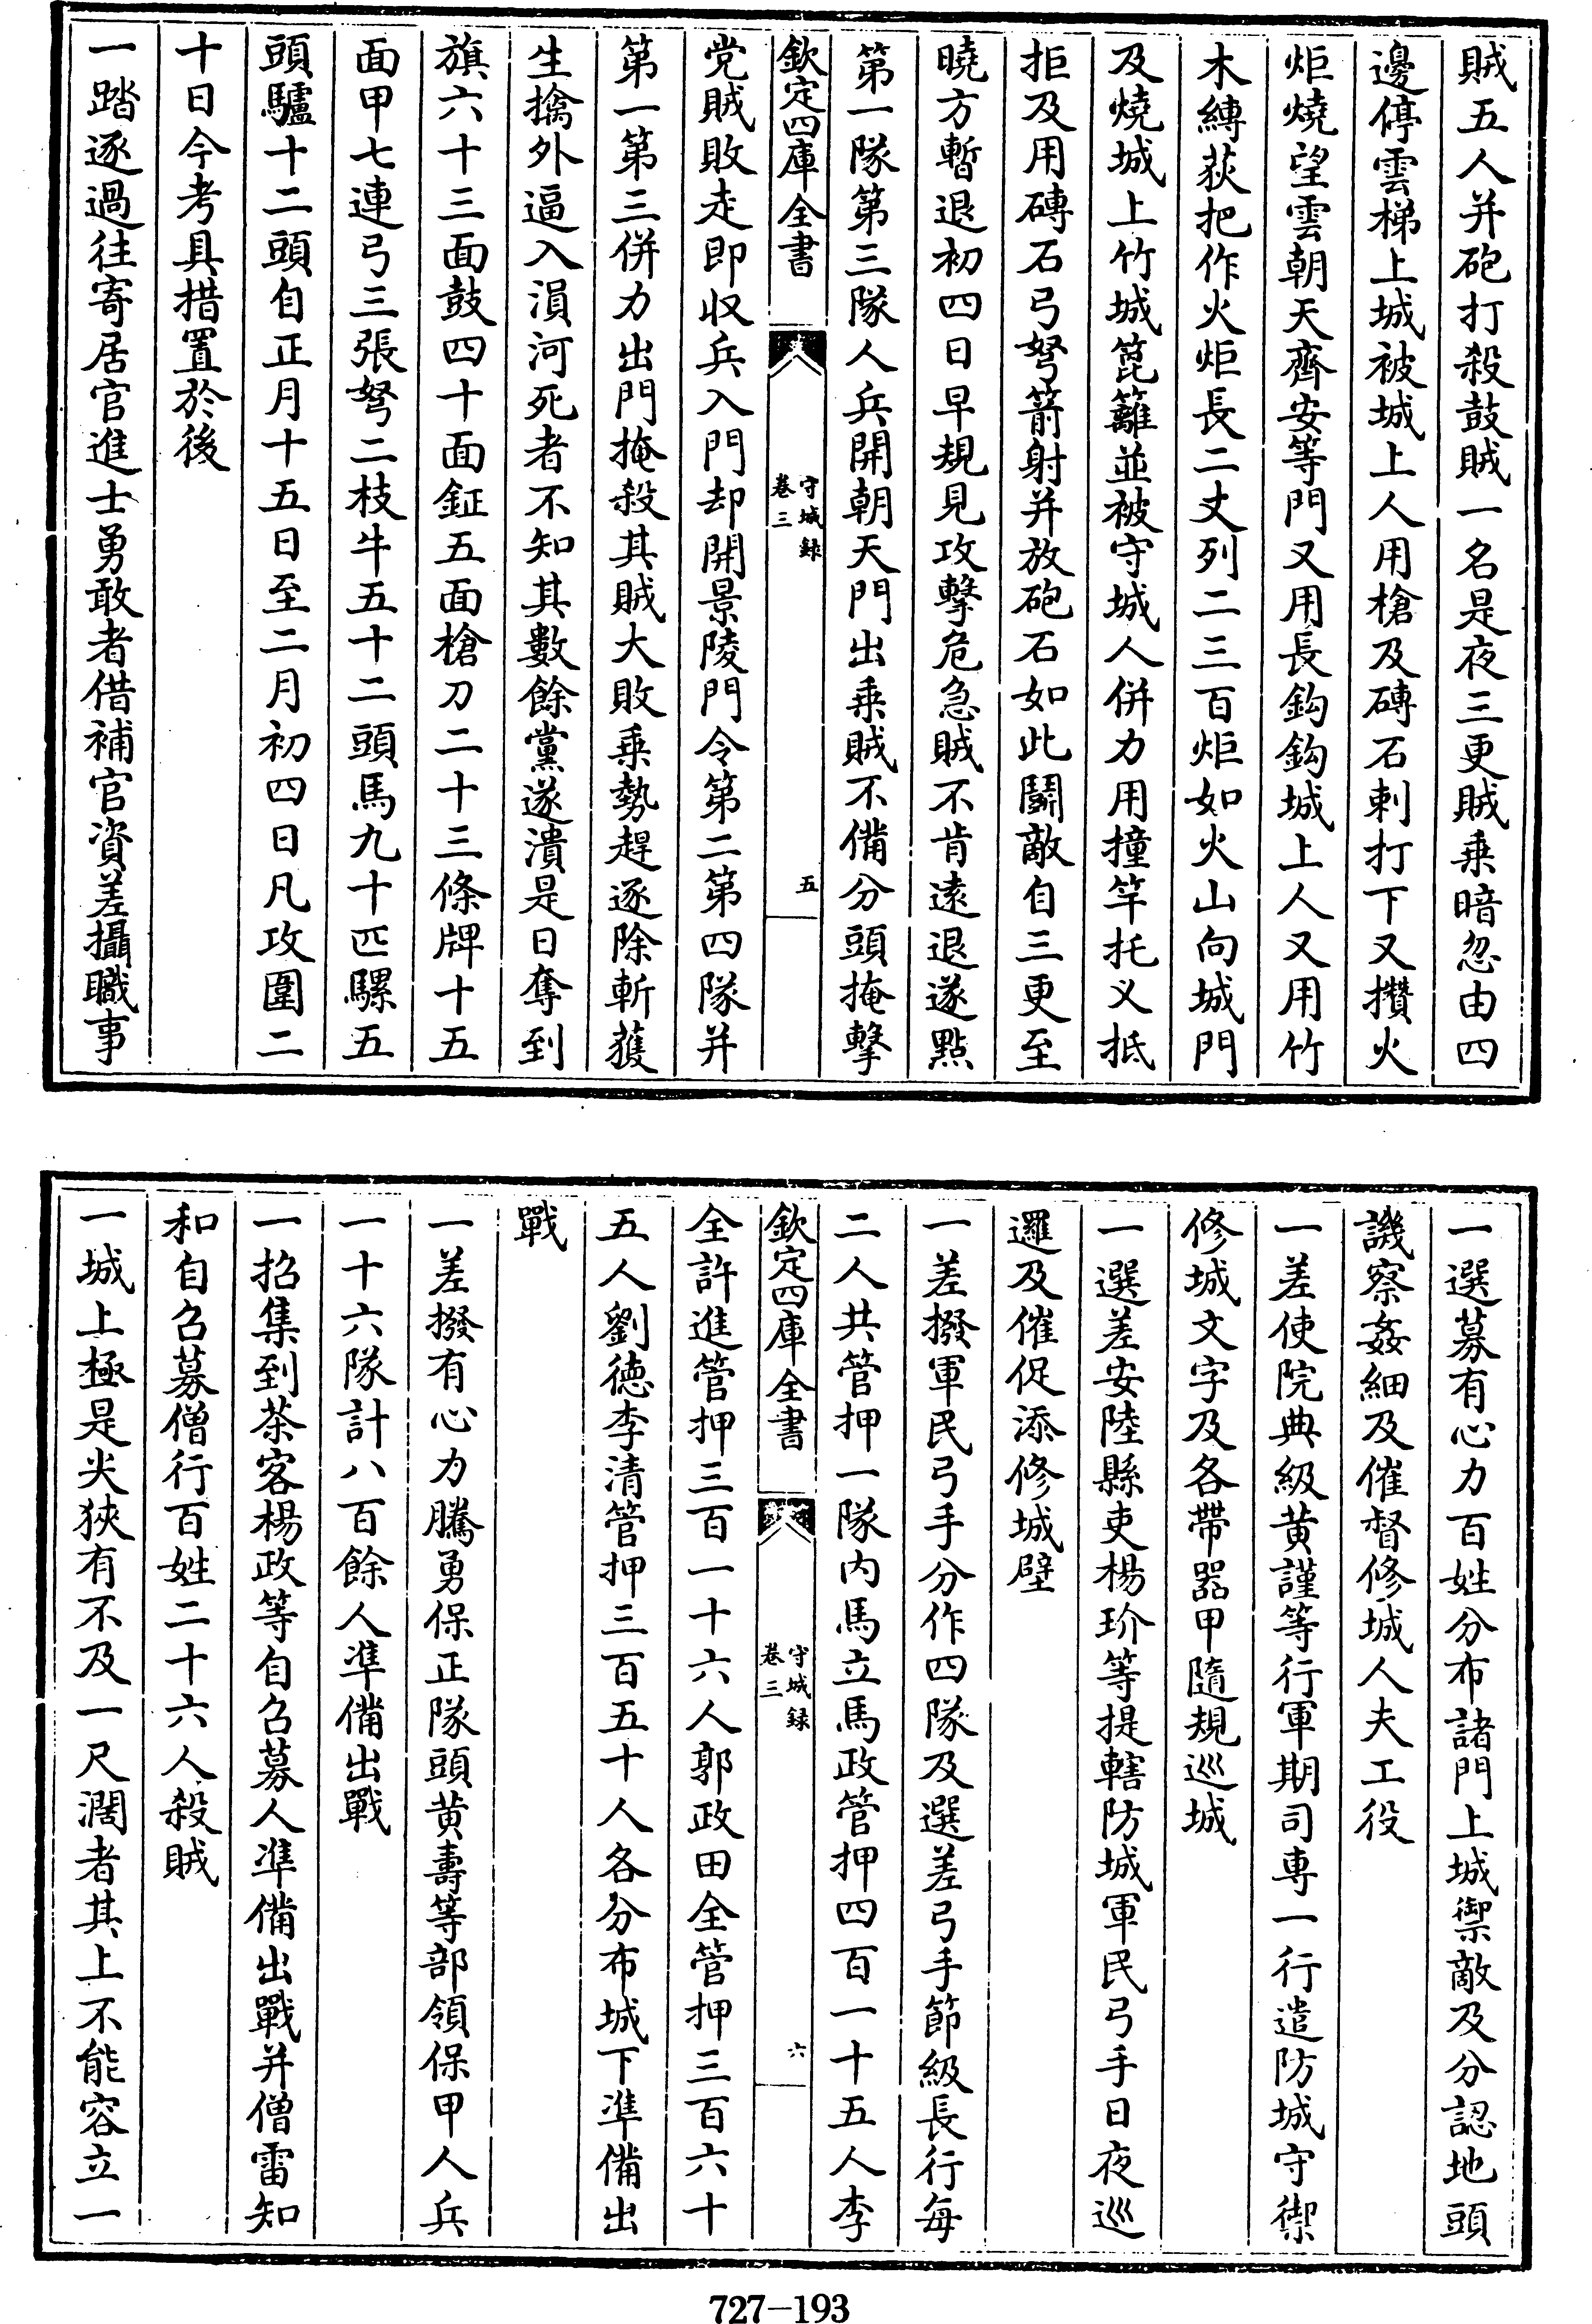 賊五人并砲打殺鼓賊一名是夜三更賊乗暗忽由四
邊停雲梯上城被城上人用槍及磚石刺打下又攢火
炬燒望雲朝天齊安等門又用長鈎鈎城上人又用竹
木縛荻把作火炬長二丈列二三百炬如火山向城門
及燒城上竹城笓籬並被守城人併力用撞竿托义抵
拒及用磚石弓弩箭射并放砲石如此鬭敵自三更至
曉方暫退初四日早規見攻擊危急賊不肯遠退遂點
第一隊第三隊人兵開朝天門出乗賊不備分頭掩擊
欽定四庫全書
守城録
卷三
五
党賊敗走即收兵入門却開景陵門令第二第四隊并
第一第三併力出門掩殺其賊大敗乗勢趕逐除斬獲
生擒外逼入溳河死者不知其數餘黨遂潰是日奪到
旗六十三面鼓四十面鉦五面槍刀二十三條牌十五
面甲七連弓三張弩二枝牛五十二頭馬九十匹騾五
頭驢十二頭自正月十五日至二月初四日凡攻圍二
十日今考具措置於後
一踏逐過往寄居官進士勇敢者借補官資差攝職事
一選募有心力百姓分布諸門上城禦敵及分認地頭
譏察姦細及催督修城人夫工役
一差使院典級黄謹等行軍期司専一行遣防城守禦
修城文字及各帶器甲隨規巡城
一選差安陸縣吏楊玠等提轄防城軍民弓手日夜巡
邏及催促添修城壁
一差撥軍民弓手分作四隊及選差弓手節級長行每
二人共管押一隊内馬立馬政管押四百一十五人李
欽定四庫全書
守城録
卷三
六
全許進管押三百一十六人郭政田全管押三百六十
五人劉徳李清管押三百五十人各分布城下凖備出
戰
一差撥有心力騰勇保正隊頭黄壽等部領保甲人兵
一十六隊計八百餘人凖備出戰
一招集到茶客楊政等自召募人凖備出戰并僧雷知
和自召募僧行百姓二十六人殺賊
一城上極是尖狹有不及一尺濶者其上不能容立一
727-193